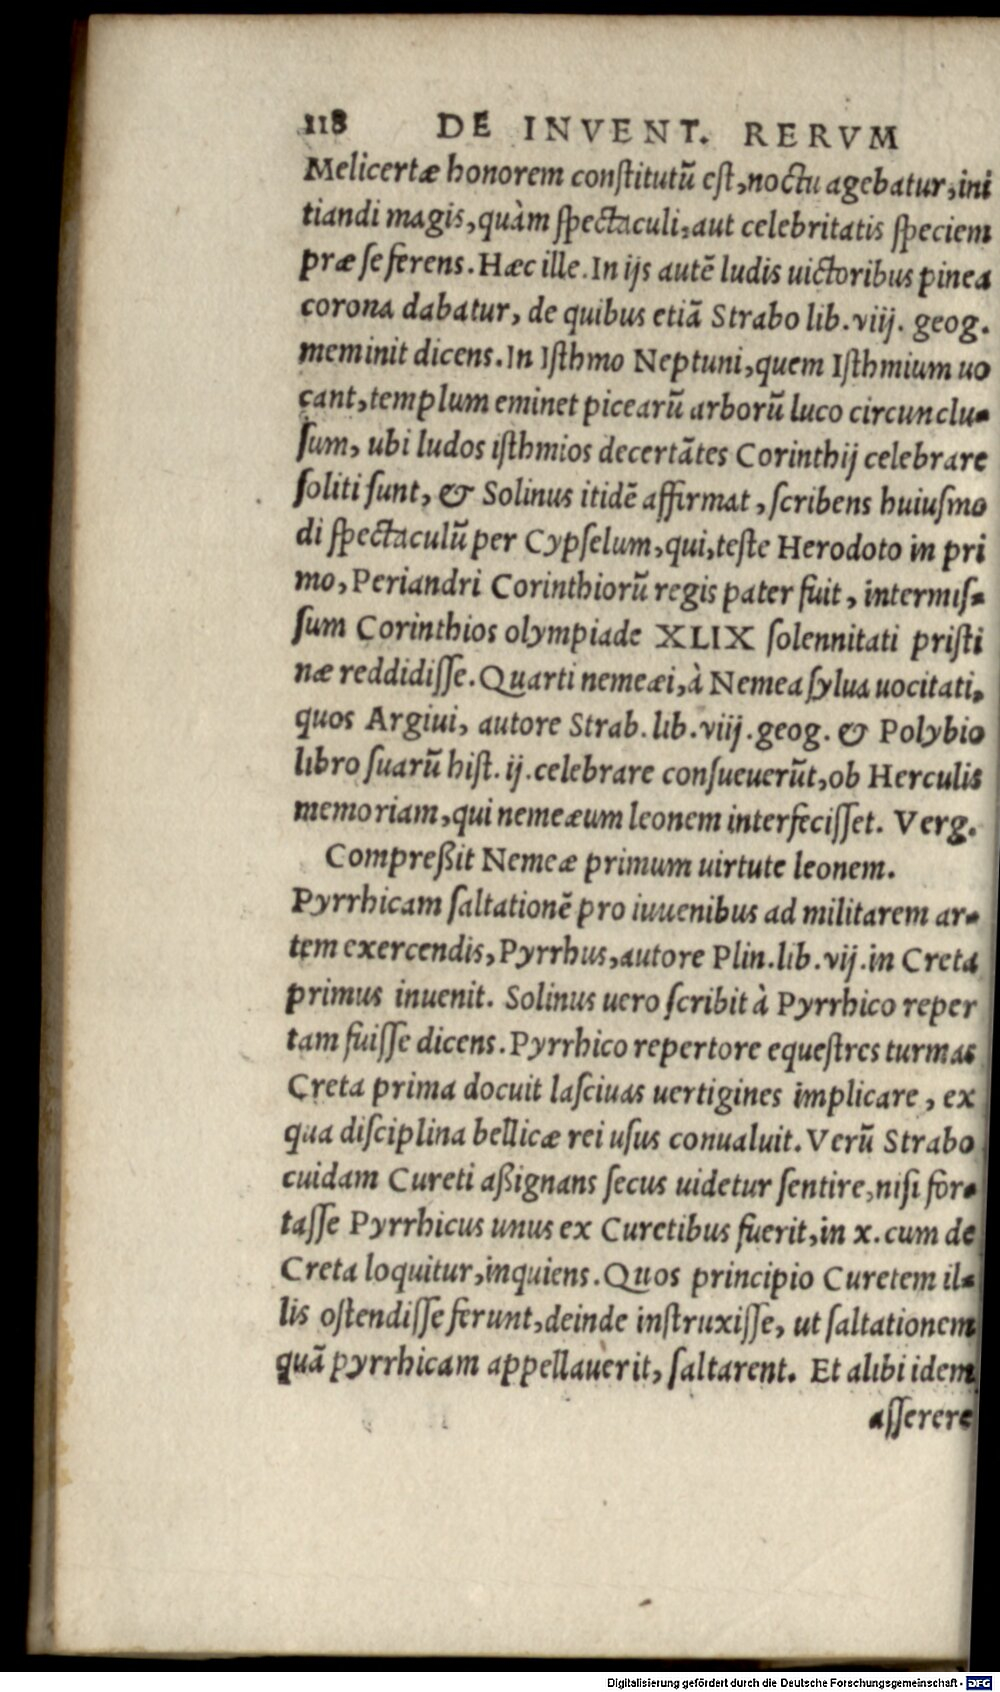 118 DE INVENT. RERVM
Melicertæ honorem conſtitutũ eſt, noctu agebatur, ini
tiandi magis, quàm ſpectaculi, aut celebritatis ſpeciem
præ ſe ferens. Hæc ille. In ijs autẽ ludis uictoribus pinea
corona dabatur, de quibus etiã Strabo lib. viij. geog.
meminit dicens. In Iſthmo Neptuni, quem Iſthmium uo
cant, templum eminet picearũ arborũ luco circunclu-
ſum, ubi ludos iſthmios decertãtes Corinthij celebrare
ſoliti ſunt, & Solinus itidẽ affirmat, ſcribens huiuſmo
di ſpectaculũ per Cypſelum, qui, teſte Herodoto in pri
mo, Periandri Corinthiorũ regis pater fuit, intermiſ-
ſum Corinthios olympiade XLIX ſolennitati priſti
næ reddidiſſe. Quarti nemeæi, à Nemea ſylua uocitati,
quos Argiui, autore Strab. lib. viij. geog. & Polybio
libro ſuarũ hiſt. ij. celebrare conſueuerũt, ob Herculis
memoriam, qui nemeæum leonem interfeciſſet. Verg.
Compreßit Nemeæ primum uirtute leonem.
Pyrrhicam ſaltationẽ pro iuuenibus ad militarem ar-
tem exercendis, Pyrrhus, autore Plin. lib. vij. in Creta
primus inuenit. Solinus uero ſcribit à Pyrrhico reper
tam fuiſſe dicens. Pyrrhico repertore equeſtres turmas
Creta prima docuit laſciuas uertigines implicare, ex
qua diſciplina bellicæ rei uſus conualuit. Verũ Strabo
cuidam Cureti aßignans ſecus uidetur ſentire, niſi for-
taſſe Pyrrhicus unus ex Curetibus fuerit, in x. cum de
Creta loquitur, inquiens. Quos principio Curetem il-
lis oſtendiſſe ferunt, deinde inſtruxiſſe, ut ſaltationem
quã pyrrhicam appellauerit, ſaltarent. Et alibi idem
aſſerere
Digitalisierung gefördert durch die Deutsche Forschungsgemeinschaft - DFG